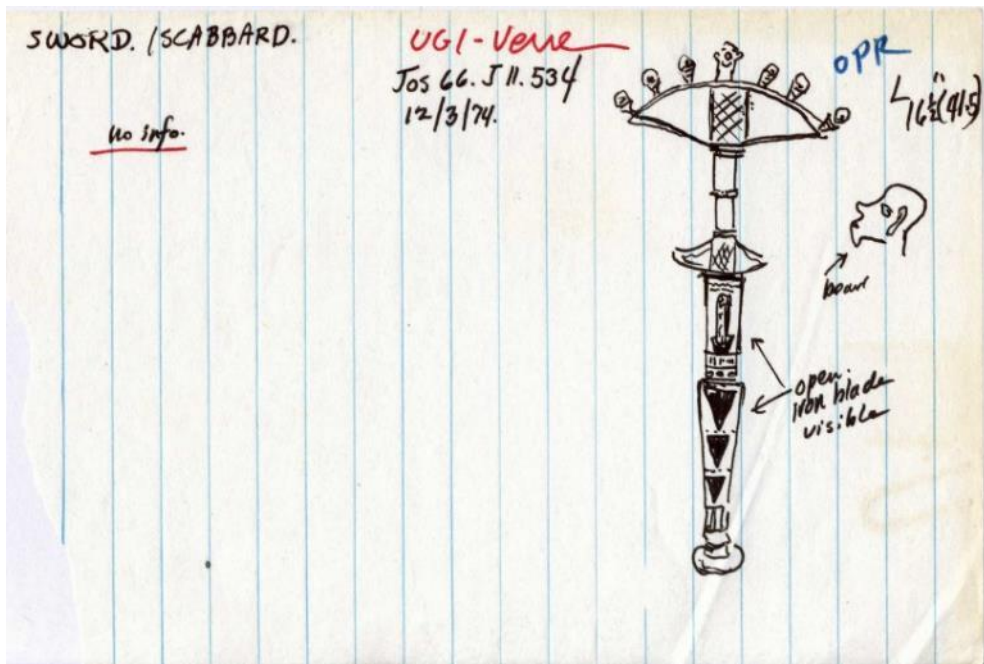 SWORD. / SCABBARD.
no info.
UGI - Verre
Jos 66. J 11. 534
12/3/74.
OPR
L 16½" (41.5)
beard
open.
iron blade
visible